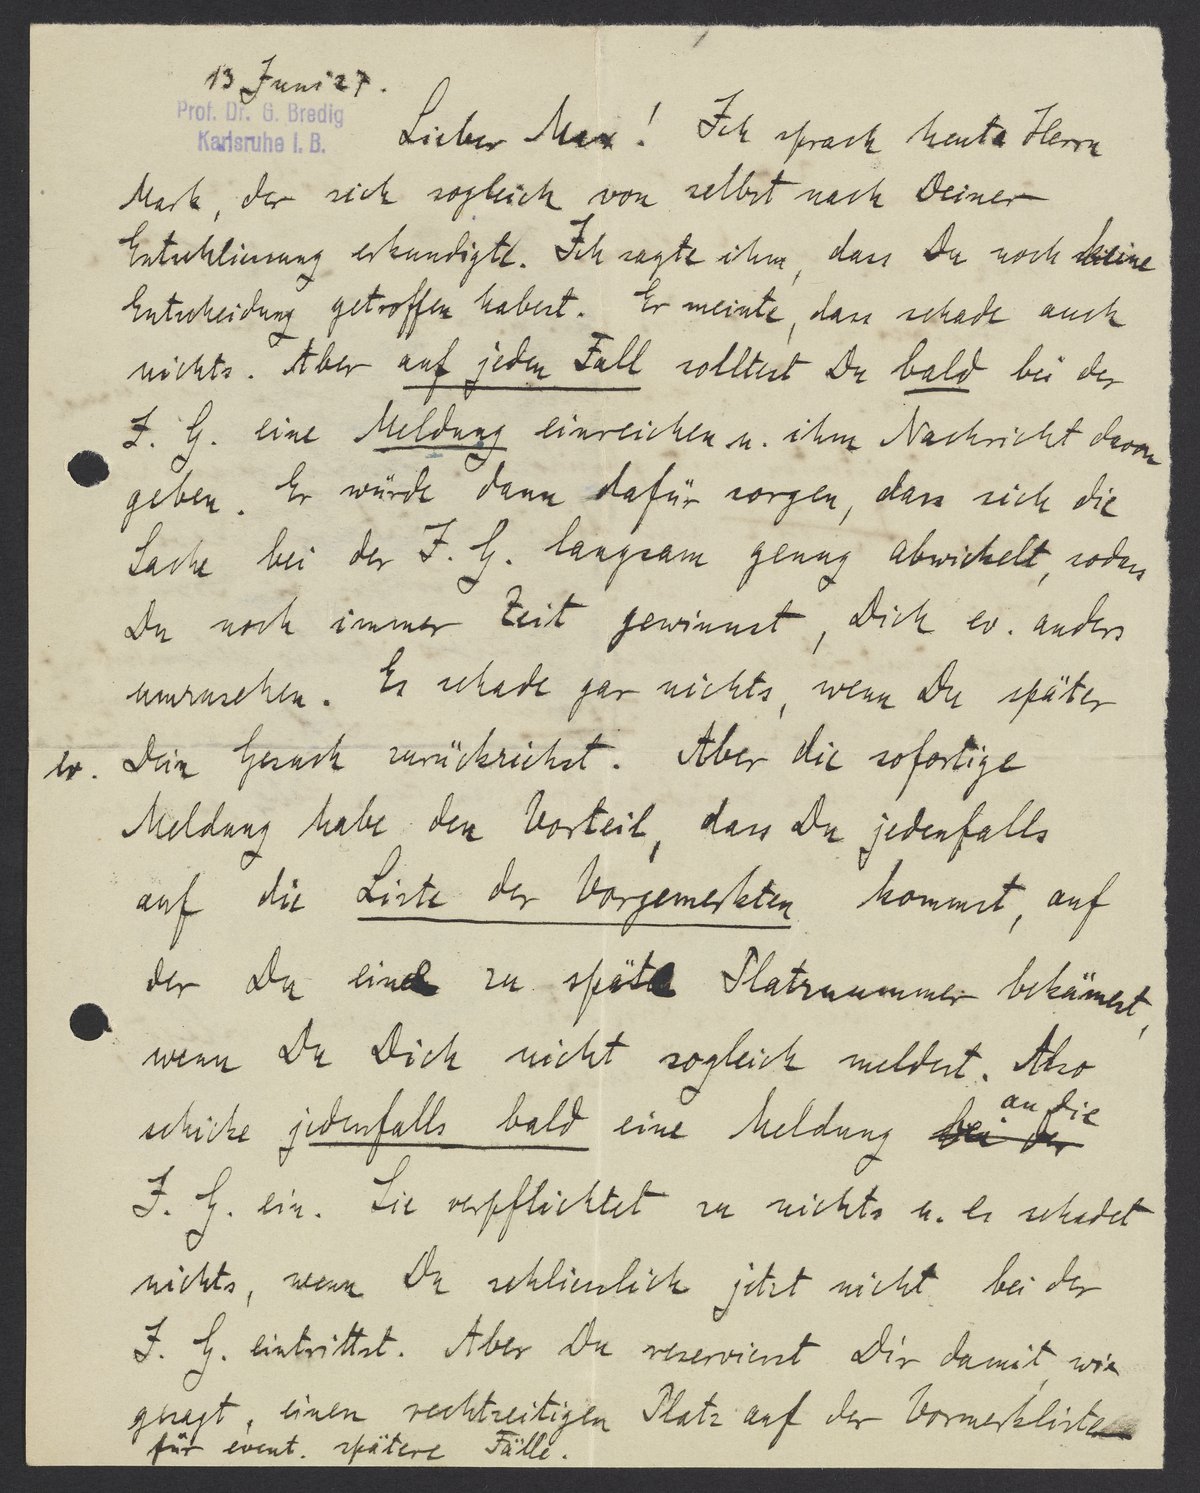 13 Juni 27.
Prof. Dr. G. Bredig
Karlsruhe i. B.
Lieber Max! Ich sprach heute Herrn
Mark, der sich sogleich von selbst nach Deiner
Entschliessung erkundigte. Ich sagte ihm, dass Du noch keine
Entscheidung getroffen habest. Er meinte, dass schade auch
nichts. Aber auf jeden Fall solltest Du bald bei der
I. G. eine Meldung einreichen u. ihm Nachricht davon
geben. Er würde dann dafür sorgen, dass sich die
Sache bei der I. G. langsam genug abwickelt, sodass
Du noch immer Zeit gewinnst, Dich ev. anders
umzusehen. Es schade gar nichts, wenn Du später
ev. Dein Gesuch zurückziehst. Aber die sofortige
Meldung habe den Vorteil, dass Du jedenfalls
auf die Liste der Vorgemerkten kommst, auf
der Du eine zu späte Platznummer bekämest,
wenn Du Dich nicht sogleich meldest. Also
schicke jedenfalls bald eine Meldung bei der an die
I. G. ein. Sie verpflichtet zu nichts u. es schadet
nichts, wenn Du schliesslich jetzt nicht bei der
I. G. eintrittst. Aber Du reservierst Dir damit, wie
gesagt, einen rechtzeitigen Platz auf der Vormerkliste
für event. spätere Fälle.